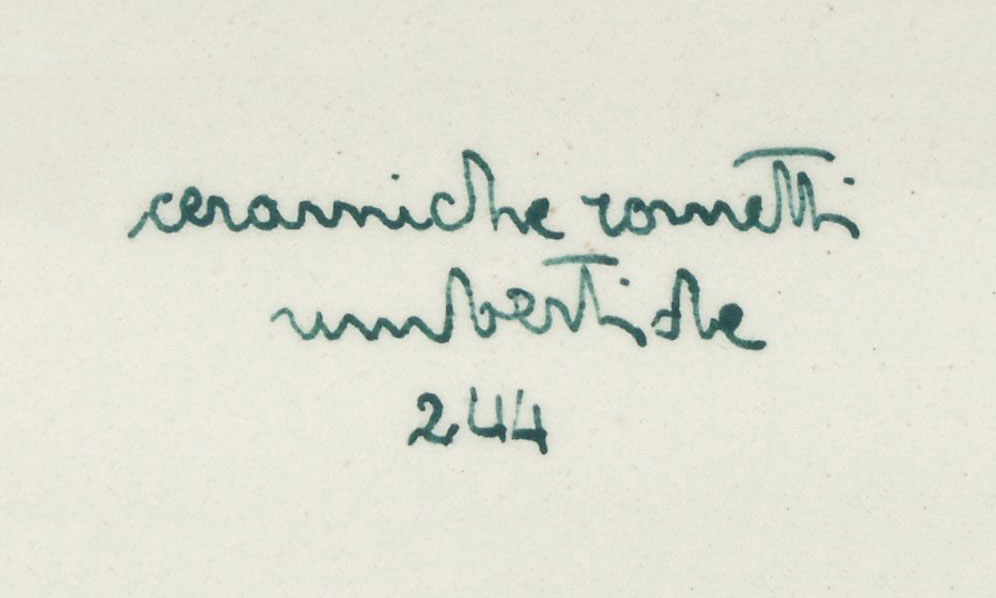 ceramiche rometti
umbertide
244